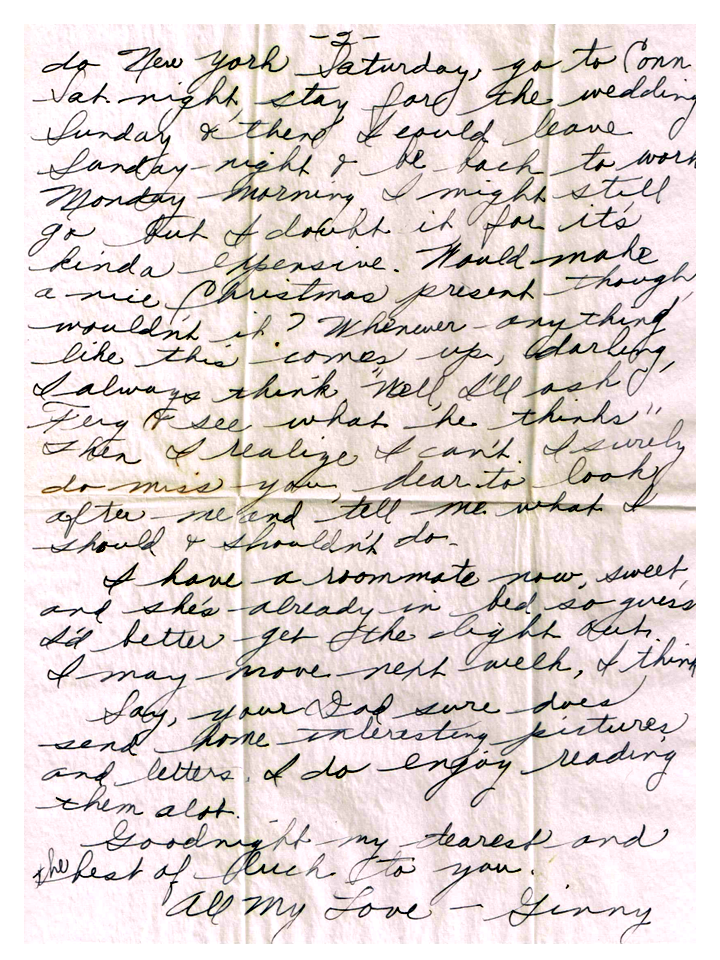 -2-
do New York Saturday, go to Conn
Sat. night, stay for the wedding
Sunday & then I could leave
Sunday night & be back to work
Monday morning I might still
go but I doubt it for it's
kinda expensive. Would make
a nice Christmas present though,
wouldn't it? Whenever anything
like this comes up, darling,
I always think "Well, I'll ask
Ferg & see what he thinks"
then I realize I can't. I surely
do miss you, dear to look
after me and tell me what I
should & shouldn't do.
I have a roommate now, sweet,
and she's already in bed so guess
I'd better get the light out.
I may move next week, I think
Say, your Dad sure does
send home interesting pictures
and letters. I do enjoy reading
them alot.
Goodnight my dearest and
the best of luck to you.
All My Love - Ginny